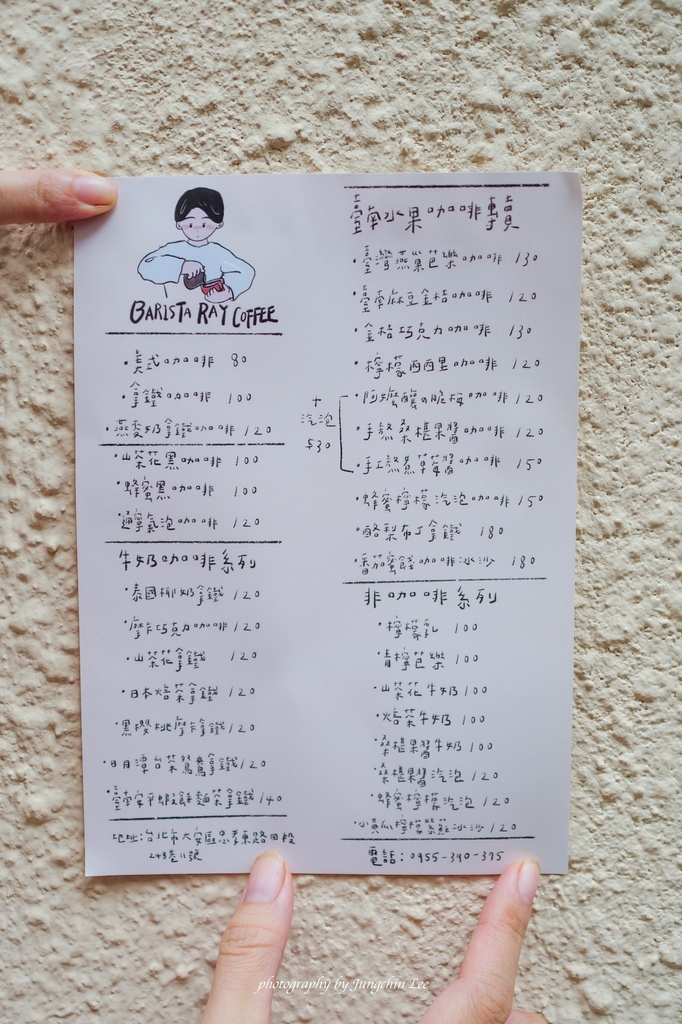 BARISTA RAY COFFEE
・美式咖啡 80
・拿鐵咖啡 100
・燕麥奶拿鐵咖啡 120
・山茶花黑咖啡 100
・蜂蜜黑咖啡 100
・通寧氣泡咖啡 120
牛奶咖啡系列
・泰國椰奶拿鐵 120
・摩卡巧克力咖啡 120
・山茶花拿鐵 120
・日本焙茶拿鐵 120
・黑櫻桃摩卡拿鐵 120
・日月潭台茶鴛鴦拿鐵 120
・臺南安平蝦餅麵茶拿鐵 140
地址:台北市大安區忠孝東路四段
248巷11號
臺南水果咖啡專賣
・臺灣燕巢芭樂咖啡 130
・臺南麻豆金桔咖啡 120
・金桔巧克力咖啡 130
・檸檬西西里咖啡 120
+汽泡$30
・阿嬤釀の脆梅咖啡 120
・手熬桑椹果醬咖啡 120
・手工熬煮草莓醬咖啡 150
・蜂蜜檸檬汽泡咖啡 150
・酪梨布丁拿鐵 180
・番茄蜜餞咖啡冰沙 180
非咖啡系列
・檸檬乳 100
・青檸芭樂 100
・山茶花牛奶 100
・焙茶牛奶 100
・桑椹果醬牛奶 100
・桑椹果醬汽泡 120
・蜂蜜檸檬汽泡 120
・小黃瓜檸檬紫蘇冰沙 120
電話:0955-390-375
photography by Jungchin Lee